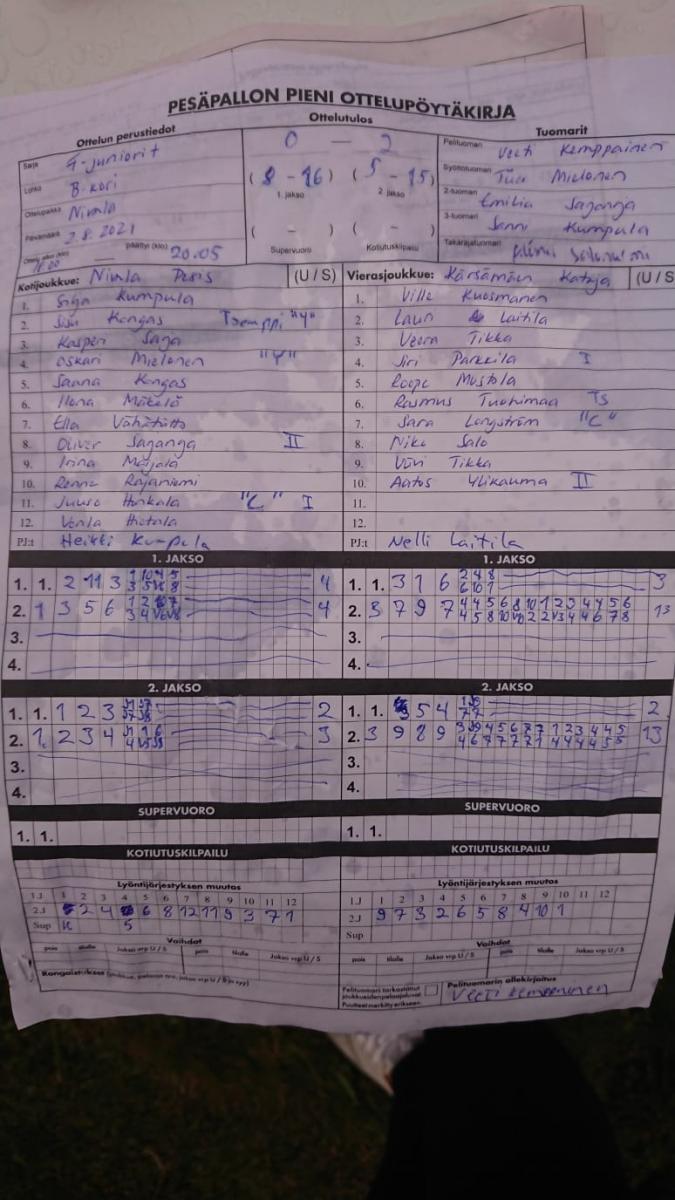 PESÄPALLON PIENI OTTELUPÖYTÄKIRJA
Ottelun perustiedot
Ottelutulos
Tuomarit
Sarja F-juniorit
Lohko B-kori
Ottelupaikka Nivala
Päivämäärä 2.8.2021
Ottelu alkoi (klo) 18.00 päättyi (klo) 20.05
0 — 2
(8 - 16) (5 - 15)
1. jakso 2. jakso
( - ) ( - )
Supervuoro Kotiutuskilpailu
Pelituomari Veeti Kemppainen
Syöttötuomari Mielonen
2-tuomari Emilia Saganga
3-tuomari Sanni Kumpula
Takarajatuomari
Kotijoukkue: Nivala Peris (U / S)
1. Kumpula
2. Sisu Kangas Tsemppi "Y"
3. Kasperi Saga
4. Oskari Mielonen "Y"
5. Sanna Kangas
6. Ilona Mäkelä
7. Ella Vähätiitto
8. Oliver Saganga II
9. Irina Marjala
10. Rajaniemi
11. Juuso Honkala "C" I
12. Venla Hietala
PJ:t Heikki Kumpula
Vierasjoukkue: Kärsämäen Kataja (U / S)
1. Ville Kuosmanen
2. Lauri Laitila
3. Veera Tikka
4. Jiri Parkkila I
5. Roope Mustola
6. Rasmus Tuohimaa Ts
7. Sara Longström "C"
8. Niko Salo
9. Tikka
10. Aatos Ylikauma II
11.
12.
PJ:t Nelli Laitila
1. JAKSO
1. 1. 2 11 3 4
2. 1 3 5 6 4
3.
4.
1. JAKSO
1. 1. 3 1 6 3
2. 3 7 9 7 13
3.
4.
2. JAKSO
1. 1. 1 2 3 2
2. 1. 2 3 4 3
3.
4.
2. JAKSO
1. 1. 5 4 2
2. 3 9 8 9 13
3.
4.
SUPERVUORO
1. 1.
SUPERVUORO
1. 1.
KOTIUTUSKILPAILU
KOTIUTUSKILPAILU
Lyöntijärjestyksen muutos
1.J 1 2 3 4 5 6 7 8 9 10 11 12
2.J 2 4 6 8 12 11 9 3 7 1
Sup
Lyöntijärjestyksen muutos
1.J 1 2 3 4 5 6 7 8 9 10 11 12
2.J 9 7 3 2 6 5 8 4 10 1
Sup
Vaihdot
pois tilalle Jakso vrp U / S pois tilalle Jakso vrp U / S
Vaihdot
pois tilalle Jakso vrp U / S pois tilalle Jakso vrp U / S
Pelituomari tarkastanut
joukkueiden pelaajaluvat
Puutteet merkitty erikseen
Pelituomarin allekirjoitus
Veeti Kemppainen